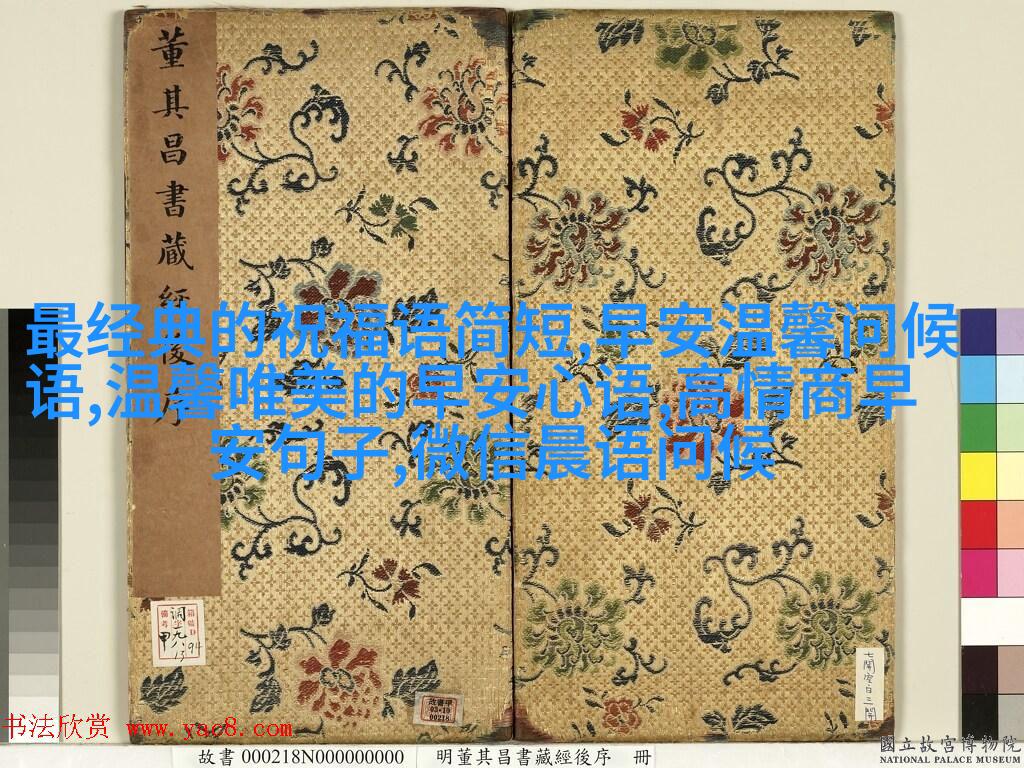 董其昌書藏經後序
最经典的祝福语简短,早安温馨问候
语,温馨唯美的早安心语,高情商早
安句子,微信晨语问候
故書甲
03•10
00218
七開空白三開
书法欣赏 www.yac8.com
故書 000218N000000000 明董其昌書藏經後序 冊
國立故宮博物院
NATIONAL PALACE MUSEUM